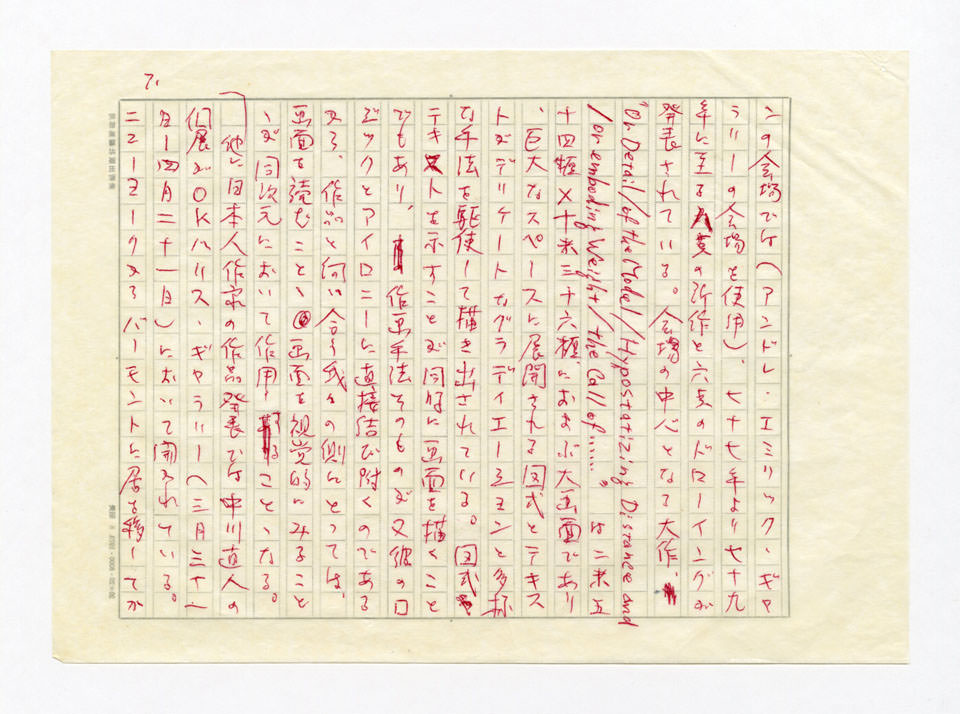 7.
ンの会場でけ(アンドレ・エミリック・ギャ
ラリーの会場を使用)、七十七年より七十九
年に至る八点の所作と六点のドローイングが
発表されている。会場の中心となる大作、
"On Detail/of the Model/Hypostatizing Distance and
/or emboding Weight/the Call of......" は二米五
十四糎×十米三十六糎におよぶ大画面であり
、巨大なスペースに展開される図式とテキス
トがデリケートなグラディエーションと多様
な手法を駆使して描き出されている。図式
テキストを示すことが同時に画面を描くこと
でもあり、作画手法そのものが又彼のロ
ジックとアイロニーに直接結び附くのである
又ろ、作品と向い合う我々の側にとっては、
画面を読むことゝ画面を視覚的にみること
ゝが同次元において作用することゝなる。
他に日本人作家の作品発表でけ中川直人の
個展がOKハリス・ギャラリー(三月三十一
日ー四月二十一日)において開かれている。
ニューヨークよろバーモントに居を移してか